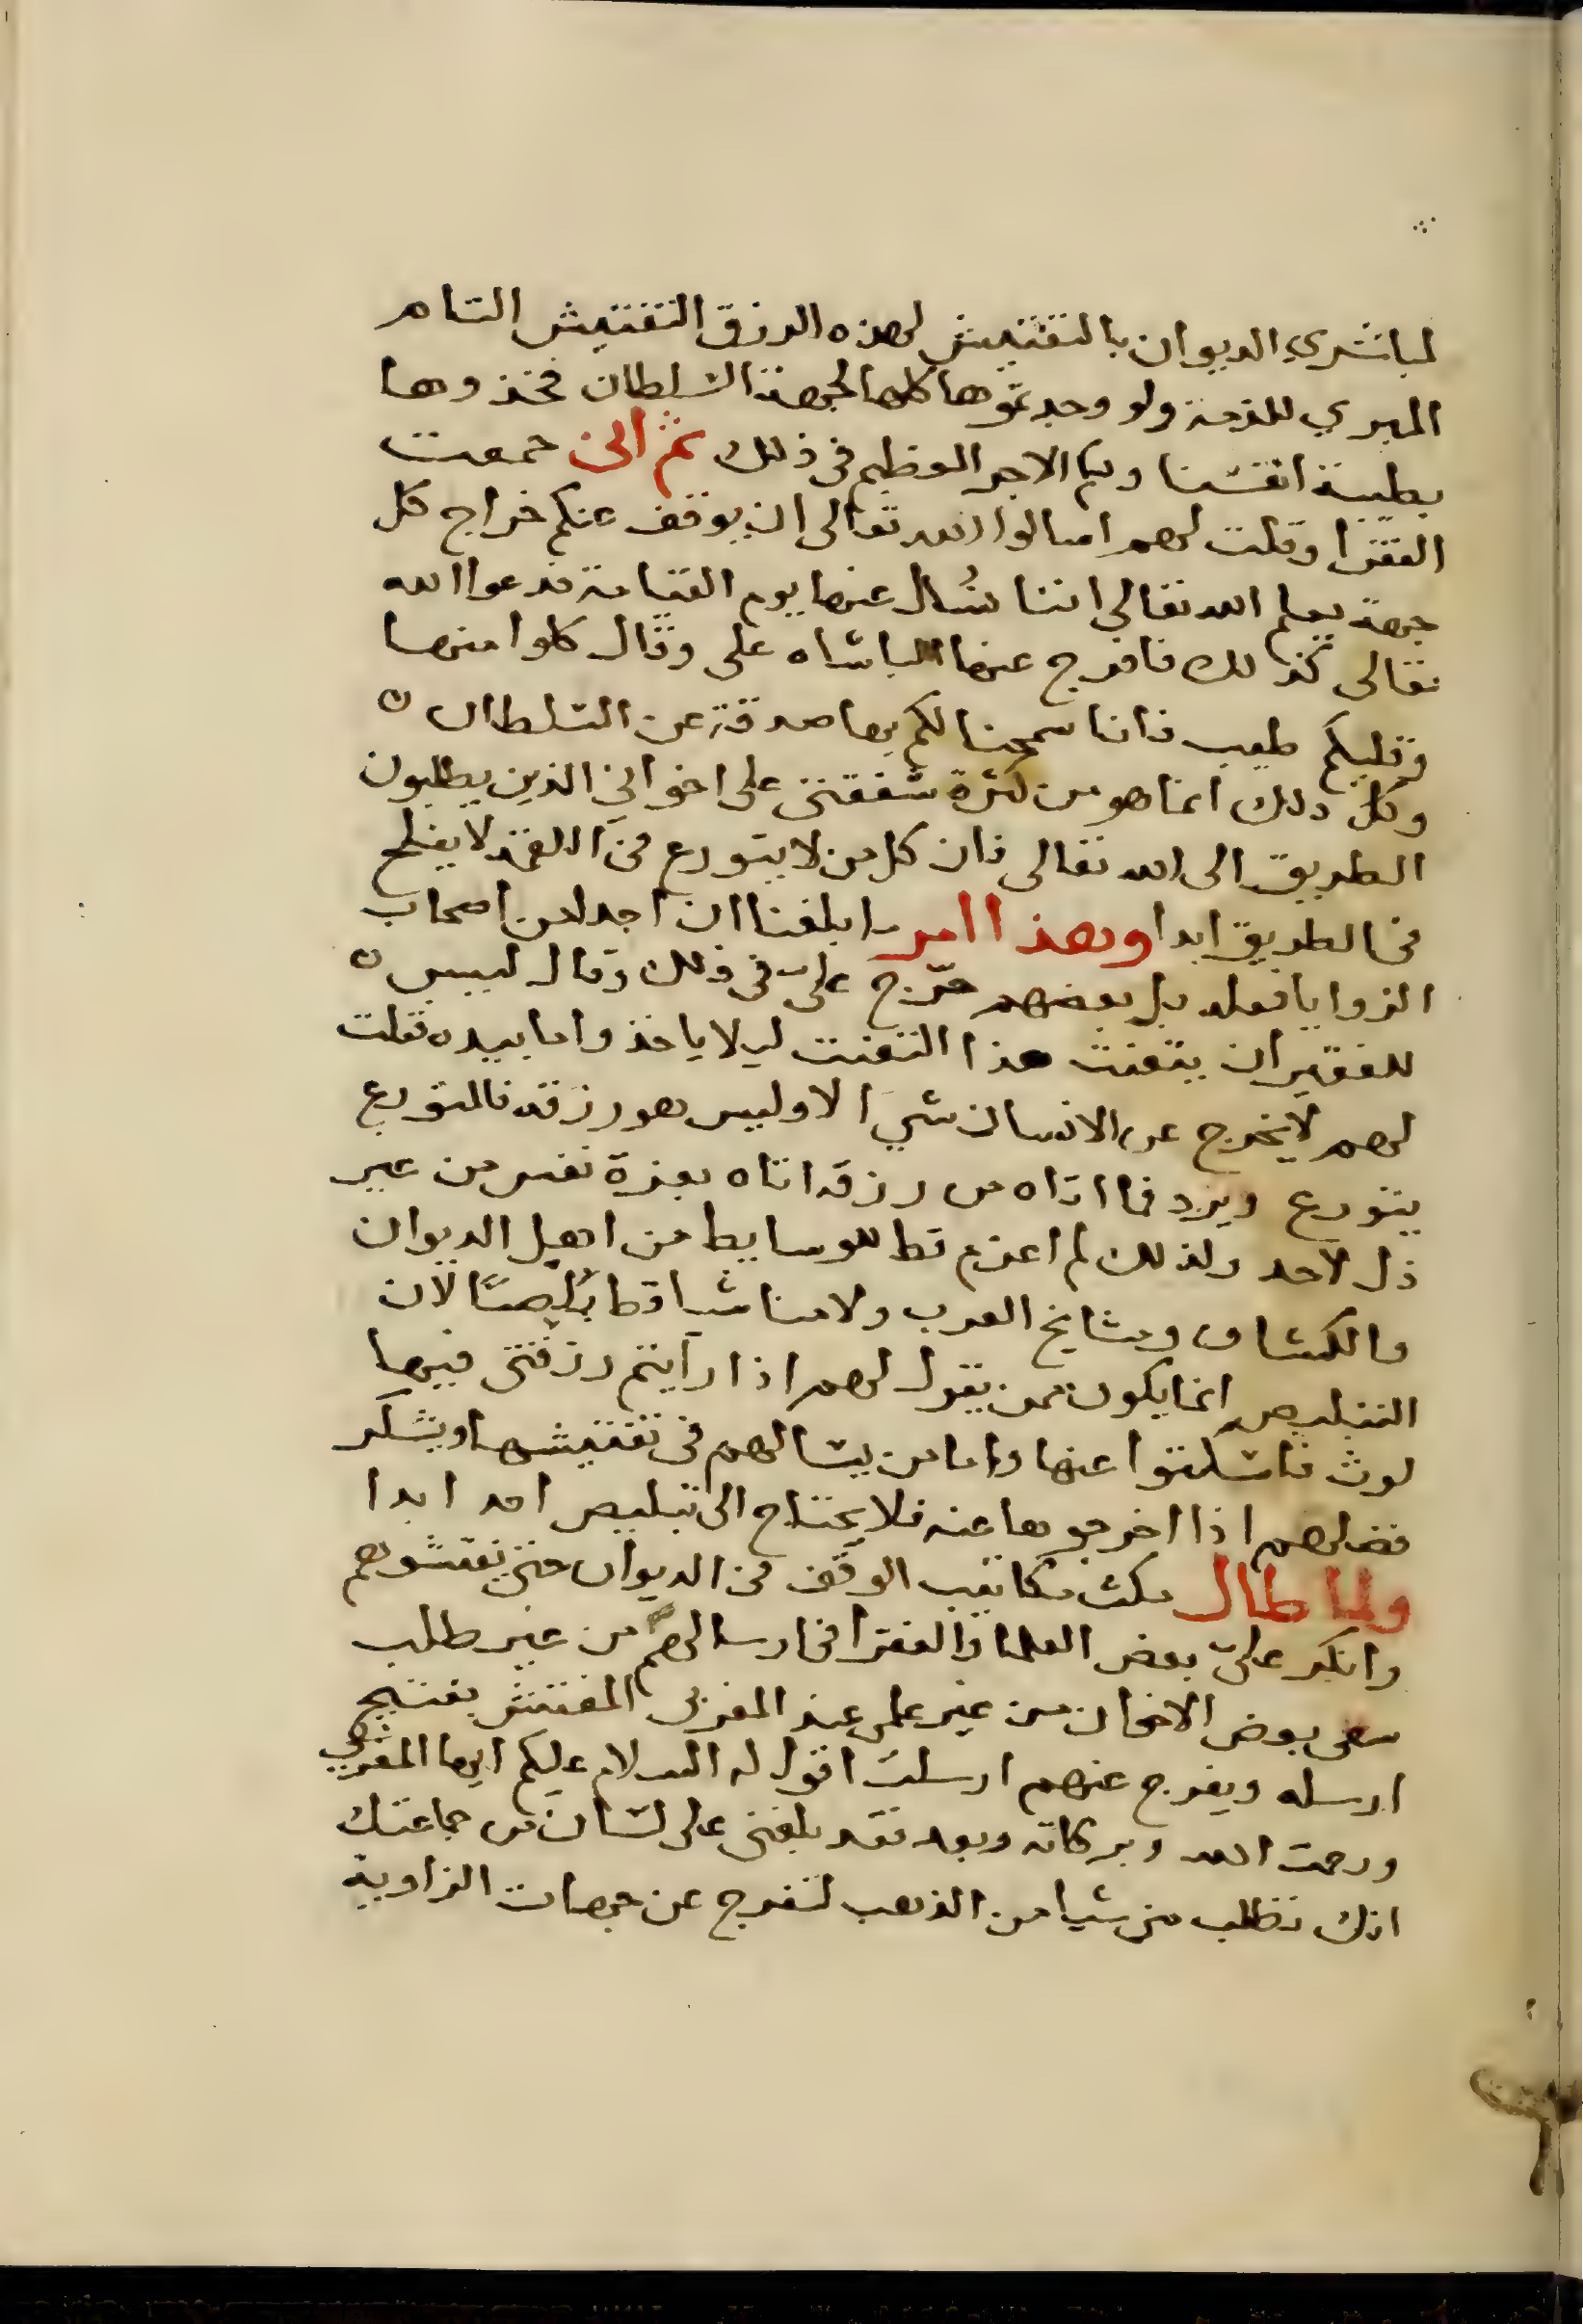 لمباشري الديوان بالتفتيش لهذه الرزق التفتيش التام
المبري للذمة ولو وجدتموها كلها لجهة السلطان فخذوها
بطيبة انفسنا ولكم الاجر العظيم في ذلك ثم اني جمعت
الفقرا وقلت لهم اسالوا الله تعالى ان يوقف عنكم خراج كل
جهة يعلم الله تعالى اننا نسال عنها يوم القيامة فدعوا الله
تعالى كذلك فافرج عنها الباشاه علي وقال كلوا منها
وقلبكم طيب فانا سمحنا لكم بها صدقة عن السلطان ه
وكل ذلك انما هو من كثرة شفقتي على اخواني الذين يطلبون
الطريق الى الله تعالى فان كل من لا يتورع في اللقمة لا يفلح
في الطريق ابدا وهذا امر ما بلغنا ان احدا من اصحاب
الزوايا فعله بل بعضهم حرّج عليّ في ذلك وقال ليس ه
للفقير ان يتعنت هذا التعنت ليلا ياخذوا ما بيده فقلت
لهم لا يخرج عن الانسان شي الا وليس هو رزقه فالمتورع
يتورع ويرد فما اتاه من رزقه اتاه بعزة نفس من غير
ذل لاحد ولذلك لم اعزم قط للوسايط من اهل الديوان
والكشاف ومشايخ العرب ولا منا شيا قط بُلصًا لان
التبليص انما يكون ممن يقول لهم اذا رايتم رزقتي فيها
لوث فاسكتوا عنها واما من يسالهم في تفتيشها ويشكر
فضلهم اذا اخرجوها عنه فلا يحتاج الى تبليص احد ابدا
ولما طال مكث مكاتيب الوقف في الديوان حتى يفتشوهم
وانكر عليّ بعض العلما والفقرا في ارسالهم من غير طلب
سعى بعض الاخوان من غير علمي عند المغربي المفتش بفتيح
ارسله ويفرج عنهم ارسلت اقول له السلام عليكم ايها المغربي
ورحمت الله وبركاته وبعد فقد بلغني على لسان من جماعتك
انك تطلب مني شيا من الذهب لتفرج عن جهات الزاوية